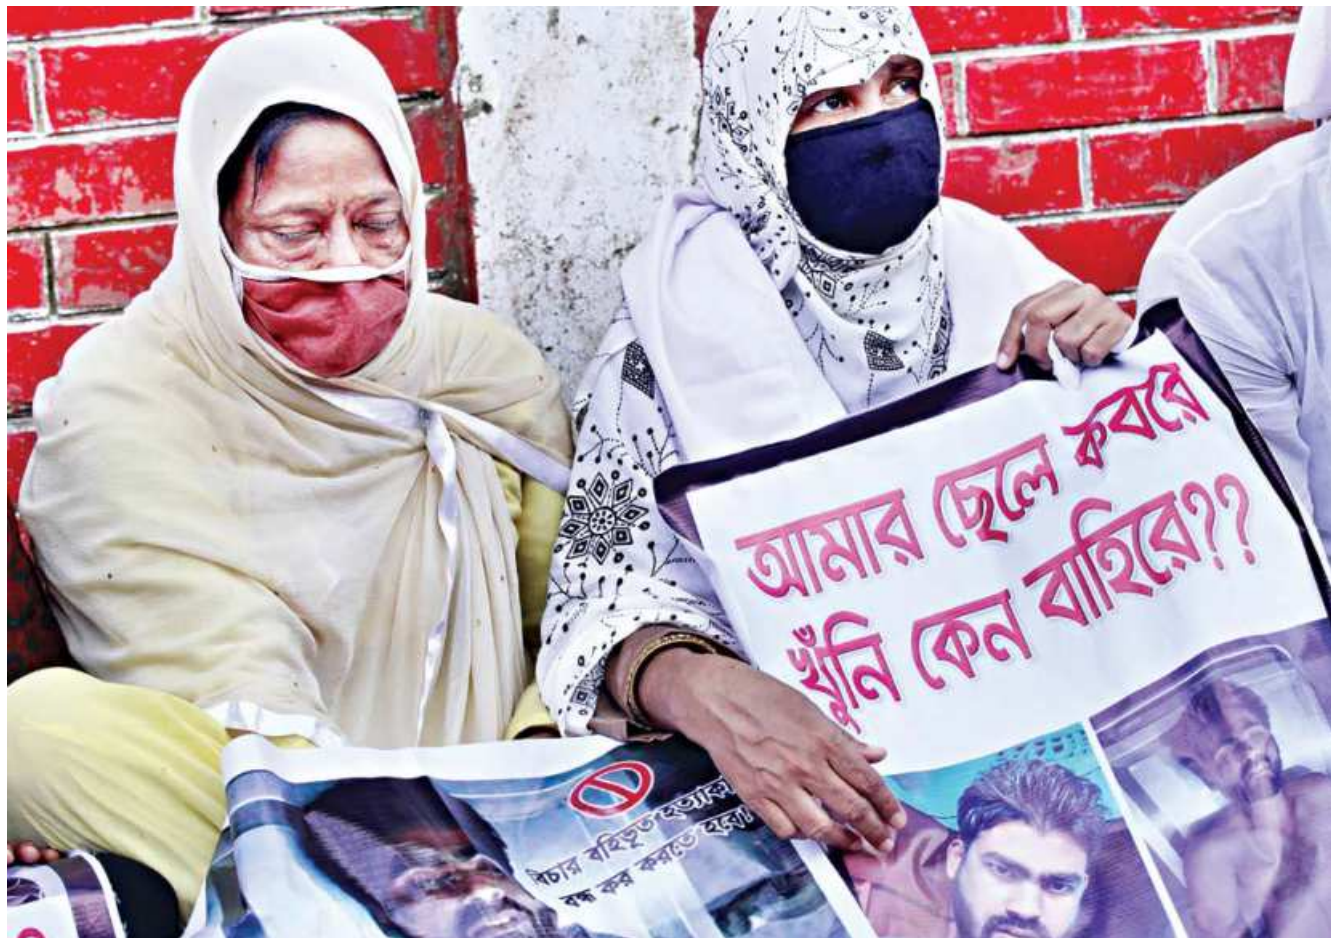 আমার ছেলে কবরে
খুঁনি কেন বাহিরে??
বিচার বহির্ভূত
বন্ধ কর করতে হবে।